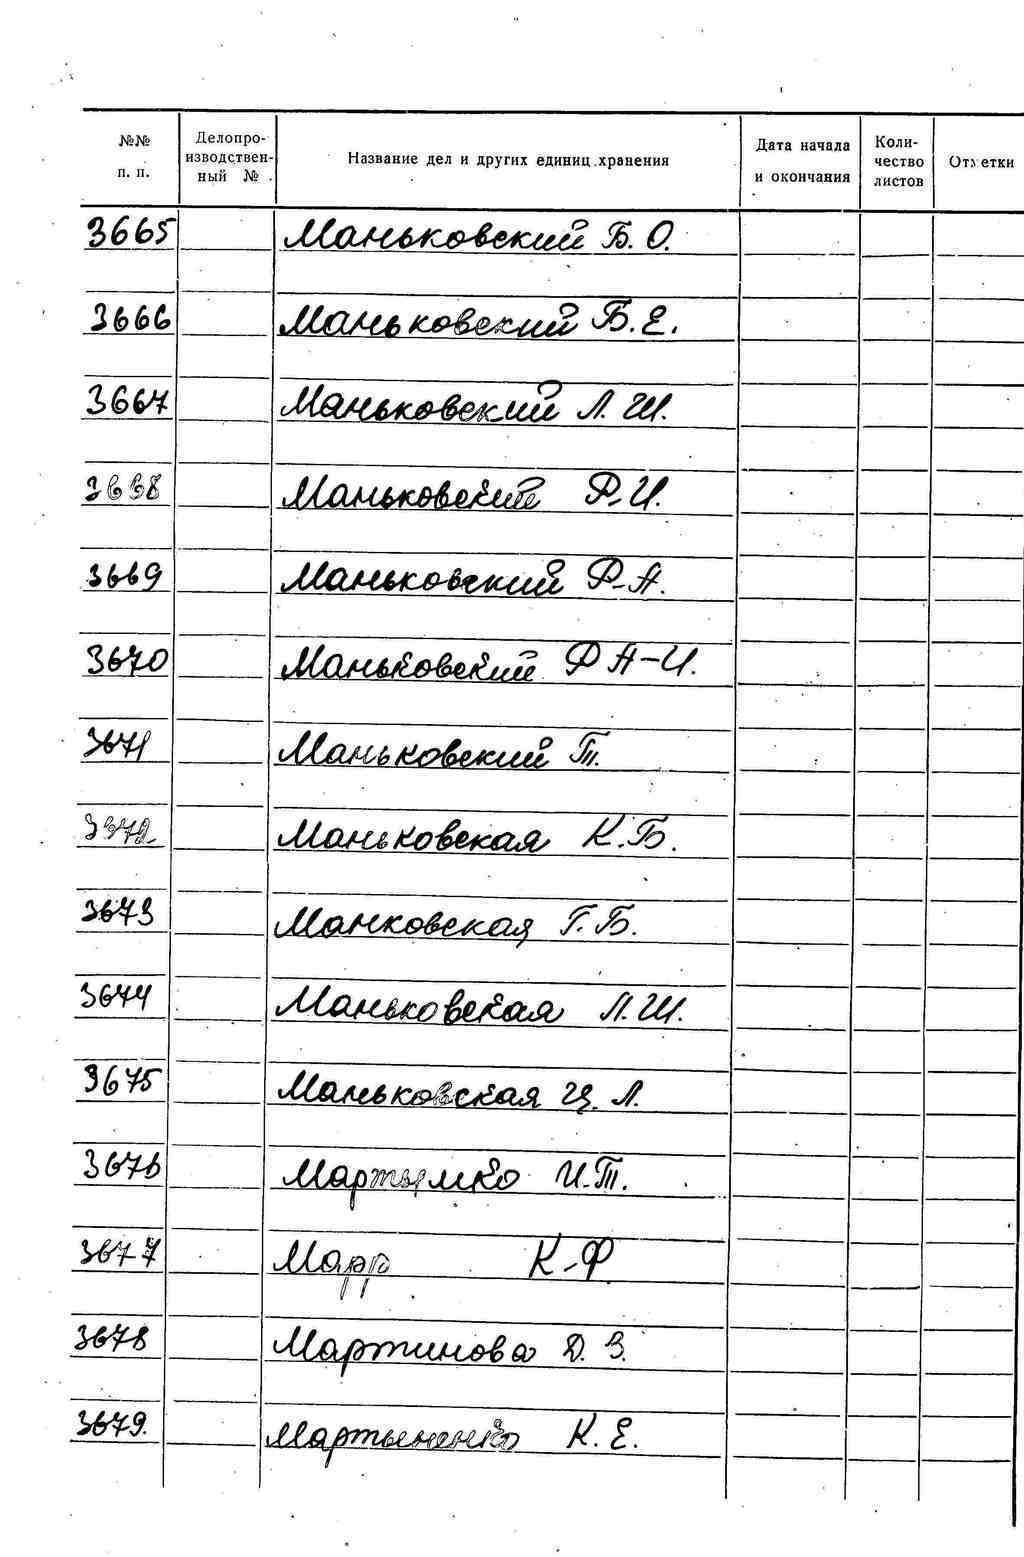 №№ п. п. Делопроизводственный № Название дел и других единиц хранения Дата начала и окончания Количество листов Отметки
3665 Маньковский Б. О.
3666 Маньковский Б. Е.
3667 Маньковский Л. Ш.
3668 Маньковский Ф. И.
3669 Маньковский Ф-А.
3670 Маньковский Ф А-И.
3671 Маньковский Т.
3672 Маньковская К. Б.
3673 Манковская Г. Б.
3674 Маньковская Л. Ш.
3675 Маньковская Ц. Л.
3676 И. Т.
3677 К-Ф
3678 Мартинова Д. З.
3679. Мартыненко К. Е.